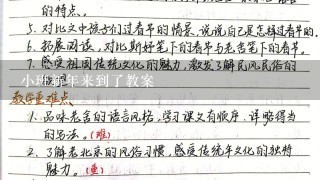 的特点。
5. 对比文中孩子们过春节的情景,说说自己是怎样过春节的。
6. 拓展阅读,对比斯好笔下的春节与老舍笔下的春节。
7. 感受祖国传统文化的魅力,激发了解民风民俗的
小班新年来到了教案
教学重难点
1. 品味老舍的语言风格,学习课文有顺序、详略得当
的写法。(难)
2. 了解老北京的风俗习惯,感受传统年文化的独特
魅力。(重)